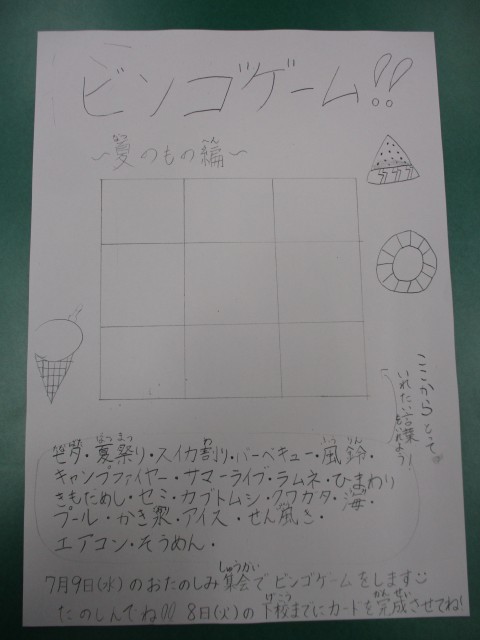 ビンゴゲーム!!
～夏のもの編～
なつ へん
ここからとって
いれたい言葉
をいれよう!
なつ まつ わ ふう りん
・夏祭り・スイカ割り・バーベキュー・風鈴・
キャンプファイヤー・サマーライブ・ラムネ・ひまわり
きもだめし・セミ・カブトムシ・クワガタ・海・
プール・かき氷・アイス・せん風き・
エアコン・そうめん・
しゅうかい
7月9日(水)のおたのしみ集会でビンゴゲームをします
げこう かんせい
たのしんでね!! 8日(火)の下校までにカードを完成させてね!